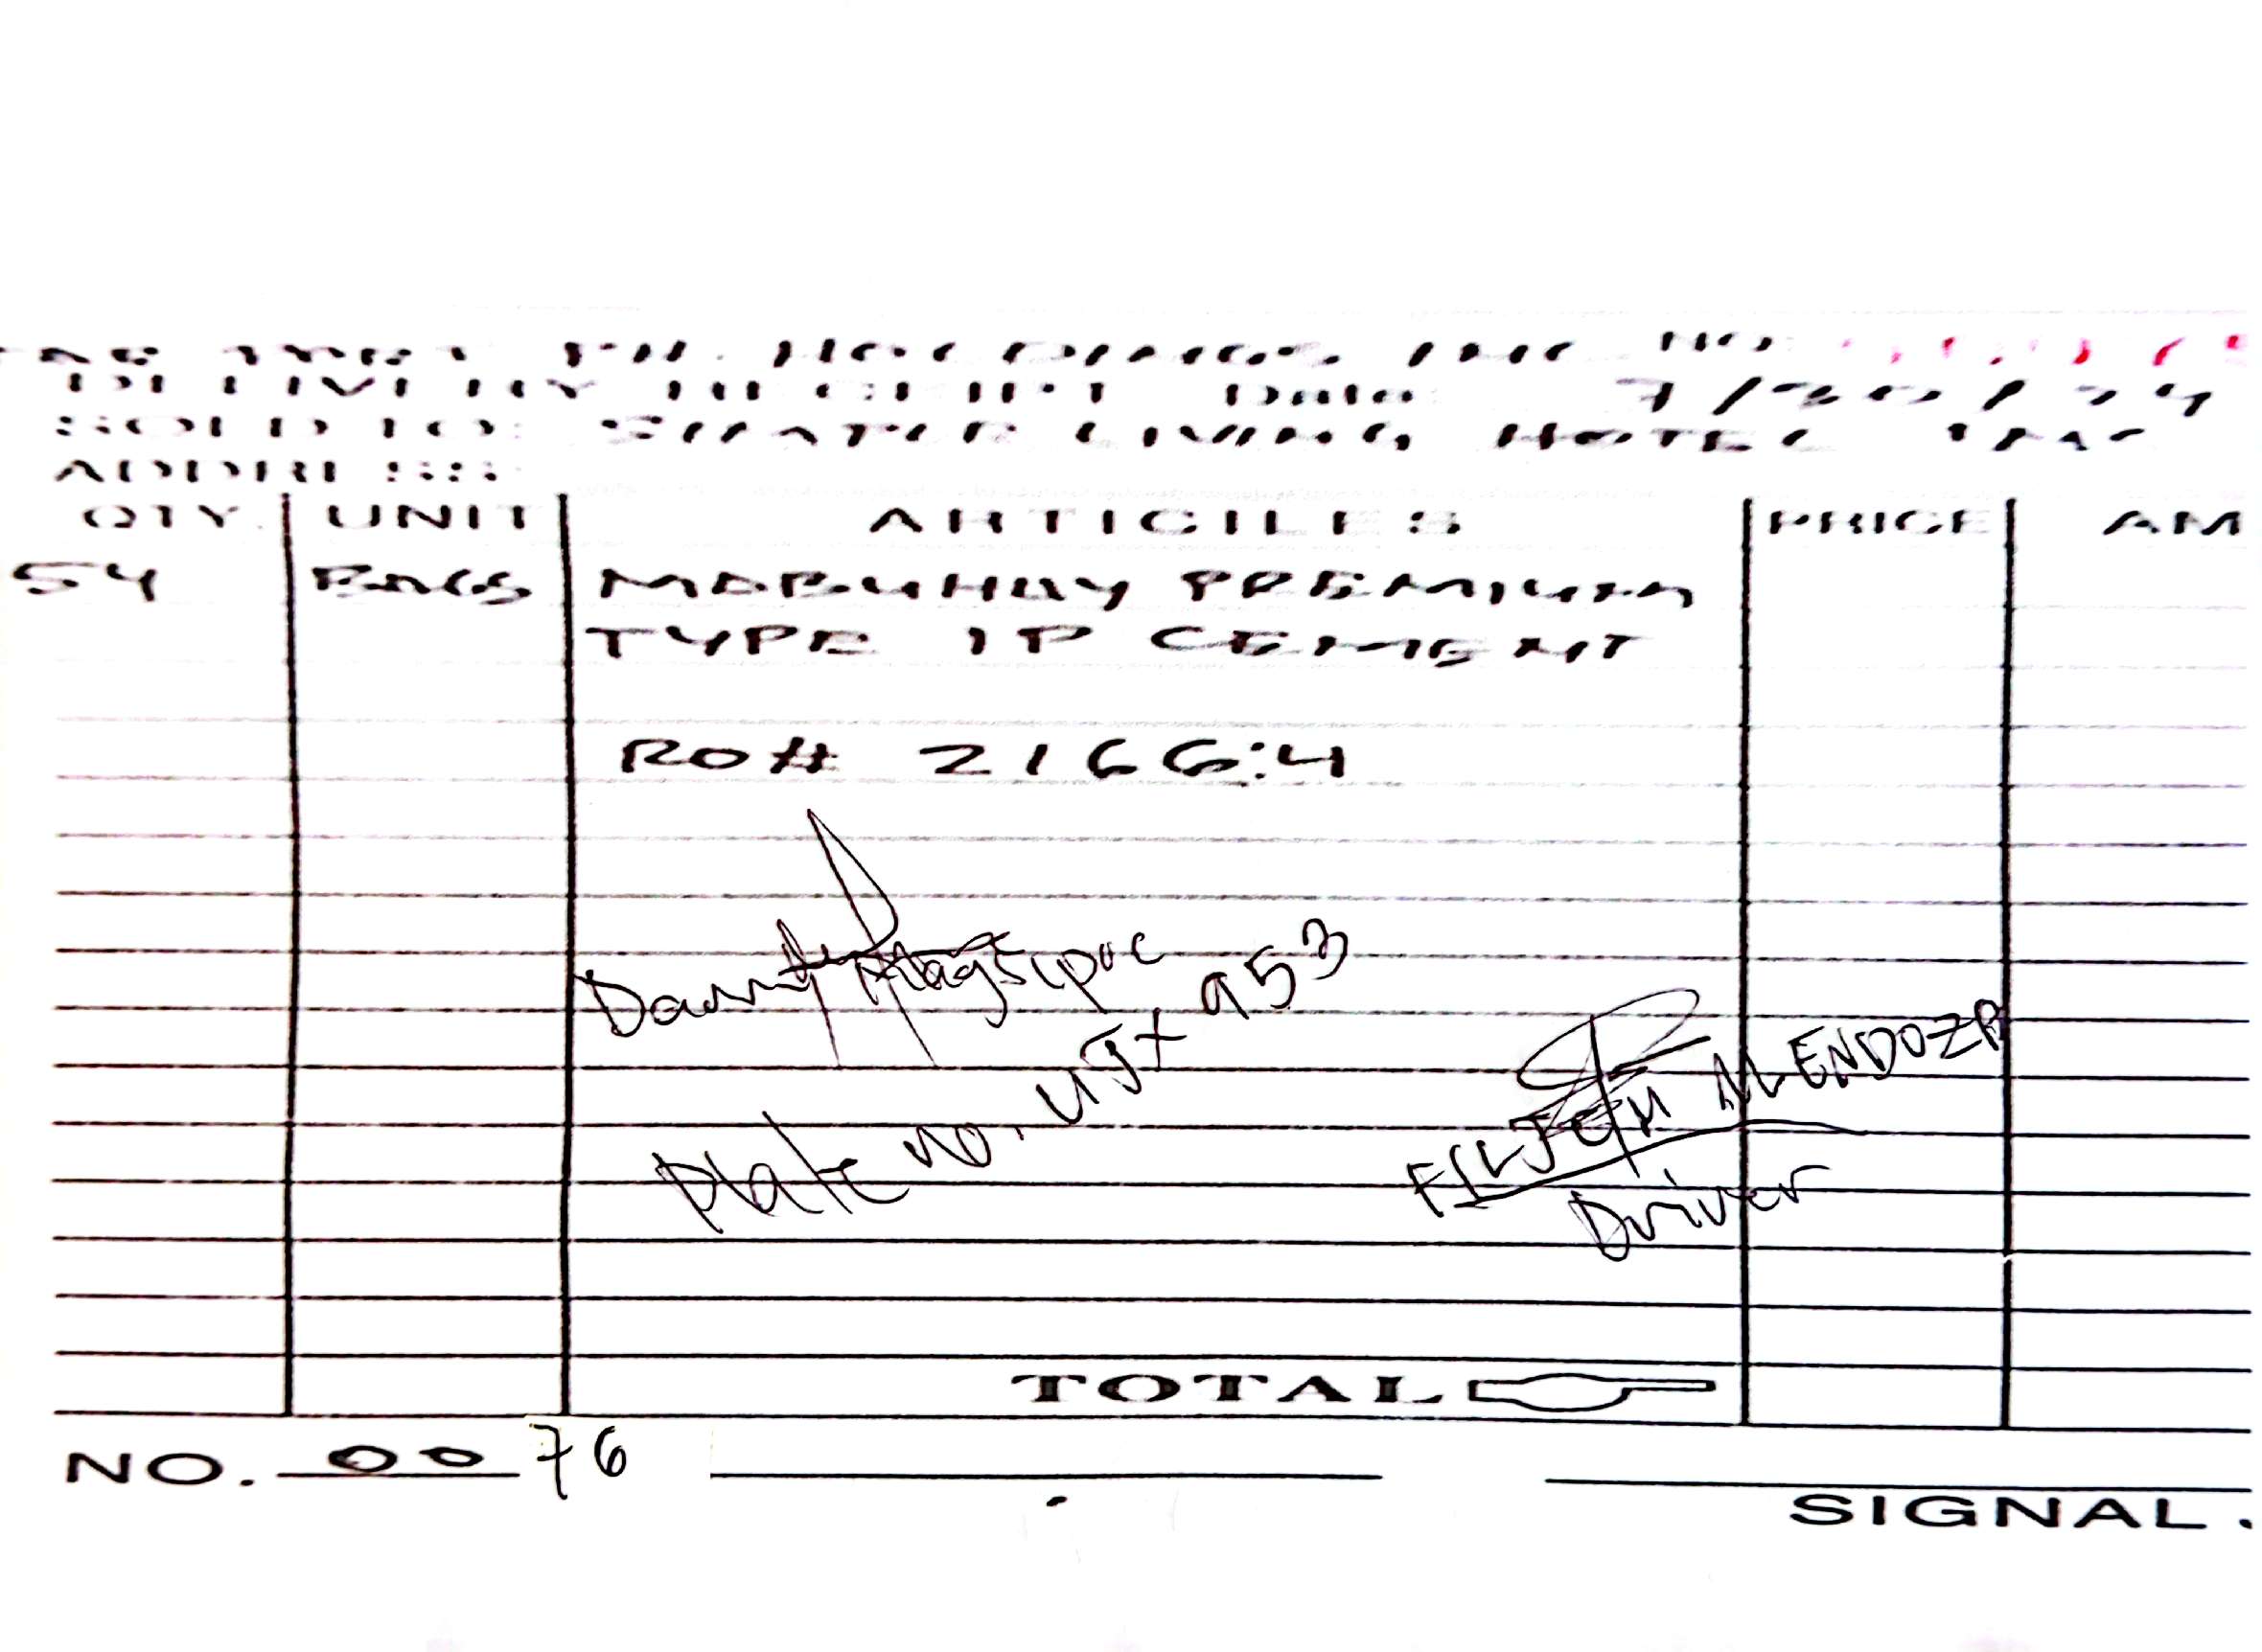 HOLDINGS, INC NO.
DELIVERY RECEIPT Date: 7/30/24
SOLD TO: LIVING HOTEL INC
ADDRESS
QTY. UNIT ARTICLES PRICE AM
54 BAGS MABUHAY PREMIUM
TYPE 1P CEMENT
RO# 2166:4
Danny Magsipoc
Plate no. UJT 953
FILJON MENDOZA
Driver
TOTAL
NO. 0076
SIGNAL.